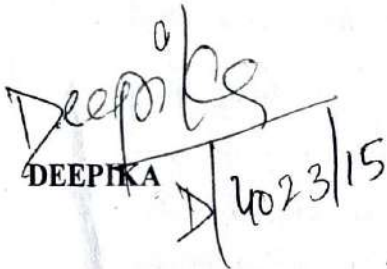 Deepika
DEEPIKA
D/4023/15